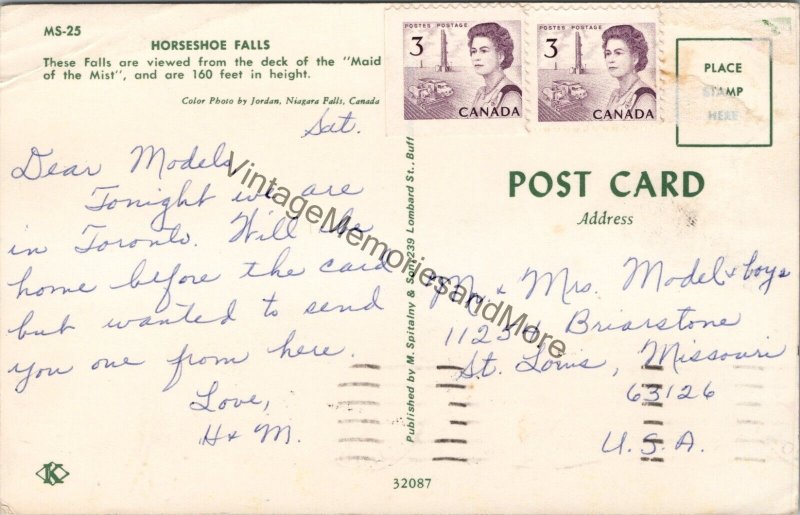 MS-25
HORSESHOE FALLS
These Falls are viewed from the deck of the "Maid
of the Mist", and are 160 feet in height.
Color Photo by Jordan, Niagara Falls, Canada
Sat.
Dear Models,
Tonight we are
in Toronto. Will be
home before the card
but wanted to send
you one from here.
Love,
H & M.
K
Published by M. Spitalny & Son, 239 Lombard St., Buff
32087
POSTES POSTAGE
3
CANADA
POSTES POSTAGE
3
CANADA
PLACE
STAMP
HERE
POST CARD
Address
Mr. & Mrs. Model & boys
11254 Briarstone
St. Louis, Missouri
63126
U.S.A.
VintageMemoriesandMore